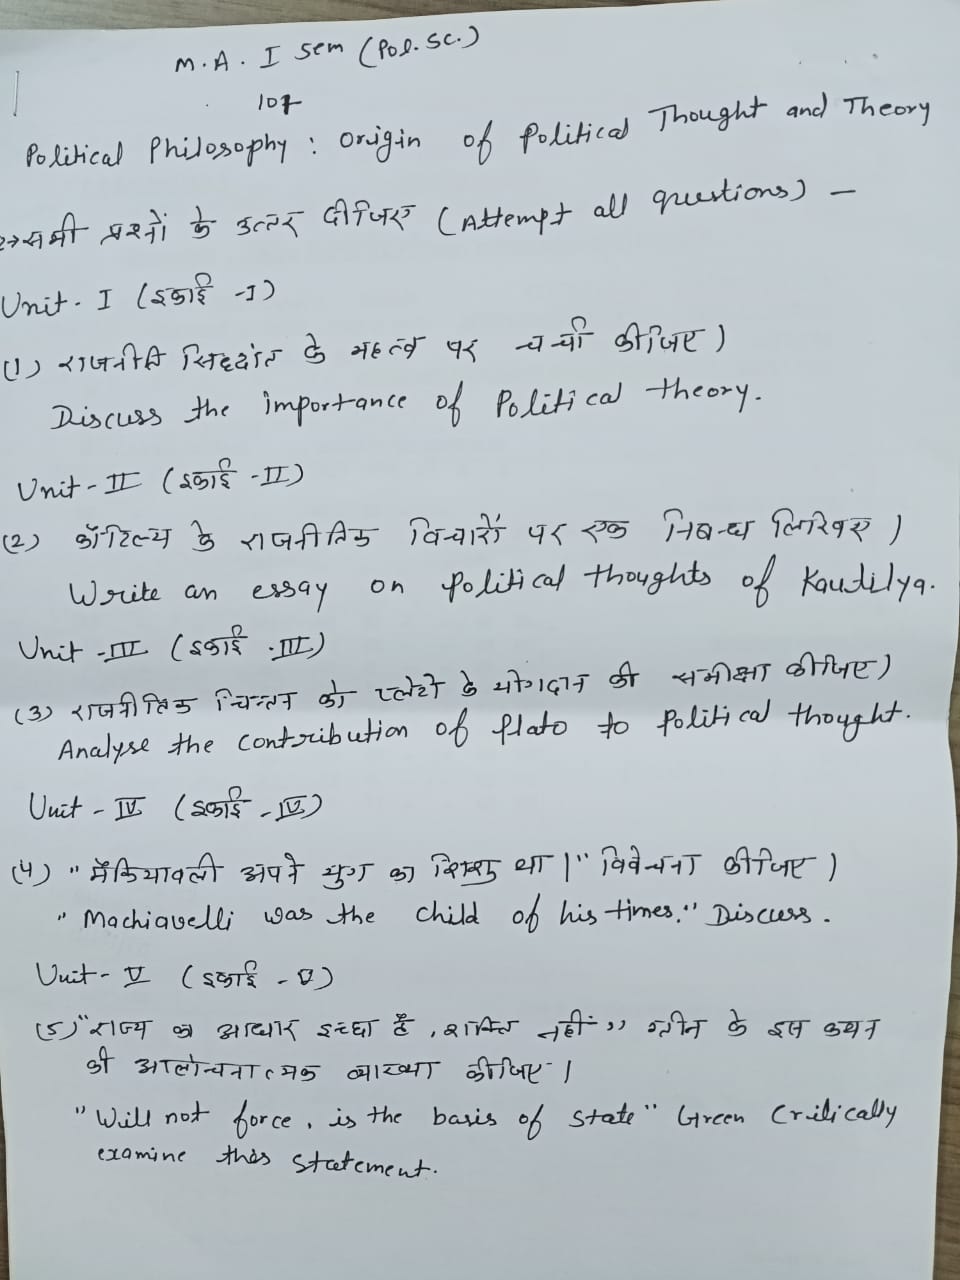 M.A. I Sem (Pol. Sc.)
107
Political Philosophy : Origin of Political Thought and Theory
सभी प्रश्नों के उत्तर दीजिए (Attempt all questions) —
Unit - I (इकाई -I)
(1) राजनीति सिद्दांत के महत्व पर चर्चा कीजिए।
Discuss the importance of Political theory.
Unit - II (इकाई -II)
(2) कौटिल्य के राजनीतिक विचारों पर एक निबन्ध लिखिए।
Write an essay on political thoughts of Kautilya.
Unit -III (इकाई -III)
(3) राजनीतिक चिन्तन को प्लेटो के योगदान की समीक्षा कीजिए।
Analyse the contribution of Plato to Political thought.
Unit - IV (इकाई -IV)
(4) "मैकियावली अपने युग का शिशु था।" विवेचना कीजिए।
"Machiavelli was the child of his times." Discuss.
Unit - V (इकाई - V)
(5) "राज्य का आधार इच्छा है, शक्ति नहीं" ग्रीन के इस कथन
की आलोचनात्मक व्याख्या कीजिए।
"Will not force, is the basis of state" Green Critically
examine this statement.